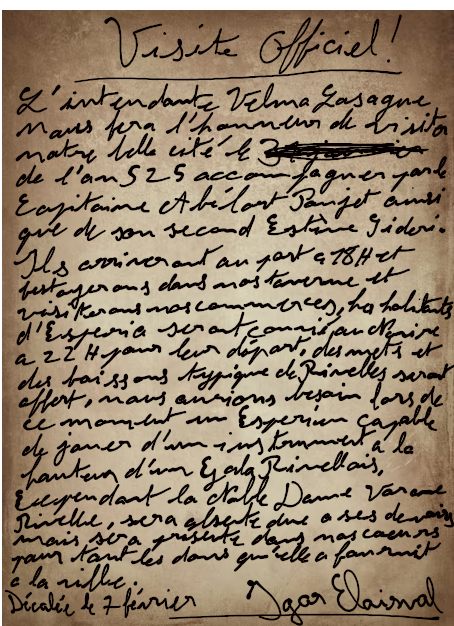 Visite Officiel!
L'intendante Velma Lasagne
nous fera l'honneur de visiter
notre belle cité le
de l'an 525 accompagner par le
Capitaine Abélart Panjet ainsi
que de son second Estève Gideri.
Ils arriveront au port a 18H et
dans nos taverne et
visiterons nos commerces, les habitants
d'Esperia seront convié au Navire
a 22H pour leur départ, des mets et
des boissons typique de Rivelles seront
offert, nous aurions besoin lors de
ce moment un Esperien capable
de jouer d'un instrument a la
hauteur d'un Gala Rivellais,
Cependant la Noble Dame Varane
Rivelle, sera absente due a ses devoirs
mais sera présente dans nos coeurs
pour tout les dons qu'elle a fournit
a la ville.
Décalée le 7 février